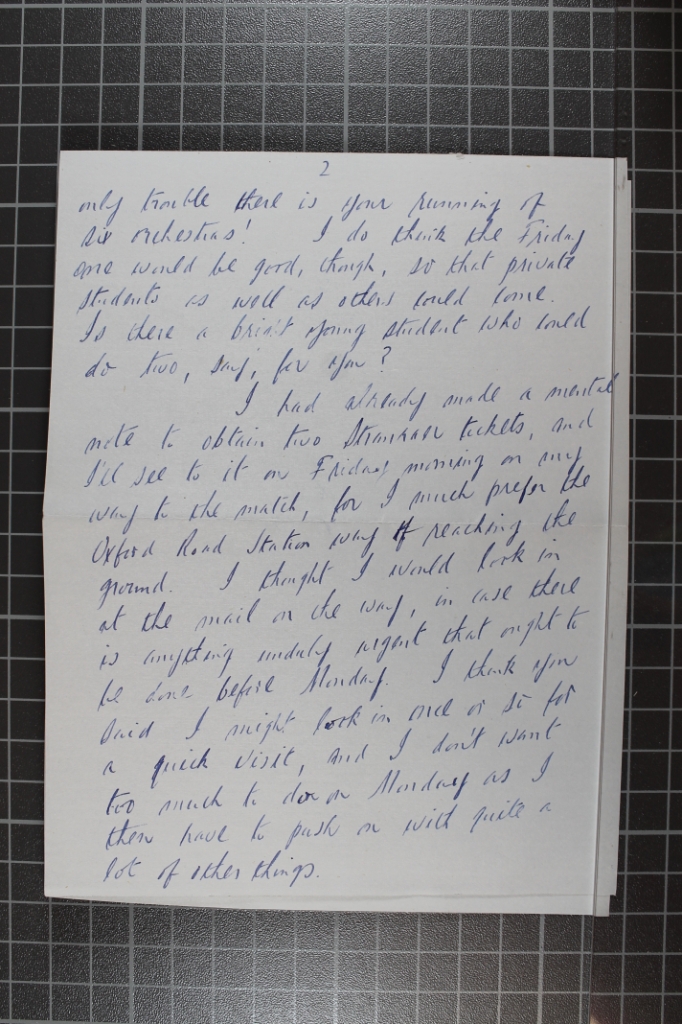 2
only trouble there is your running of
six orchestras! I do think the Friday
one would be good, though, so that private
students as well as others could come.
Is there a bright young student who could
do two, say, for you?
I had already made a mental
note to obtain two Stranraer tickets, and
I'll see to it on Friday morning on my
way to the match, for I much prefer the
Oxford Road Station way of reaching the
ground. I thought I would look in
at the mail on the way, in case there
is anything unduly urgent that ought to
be done before Monday. I think you
said I might look in once or so for
a quick visit, and I don't want
too much to do on Monday as I
then have to push on with quite a
lot of other things.